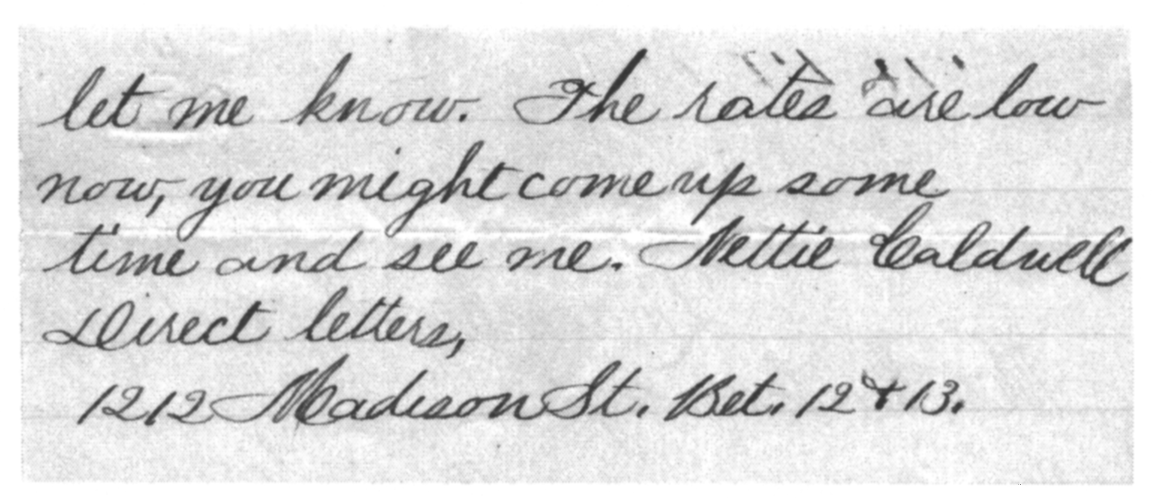 let me know. The rates are low
now, you might come up some
time and see me. Nettie Caldwell
Direct letters,
1212 Madison St. Bet. 12 & 13.